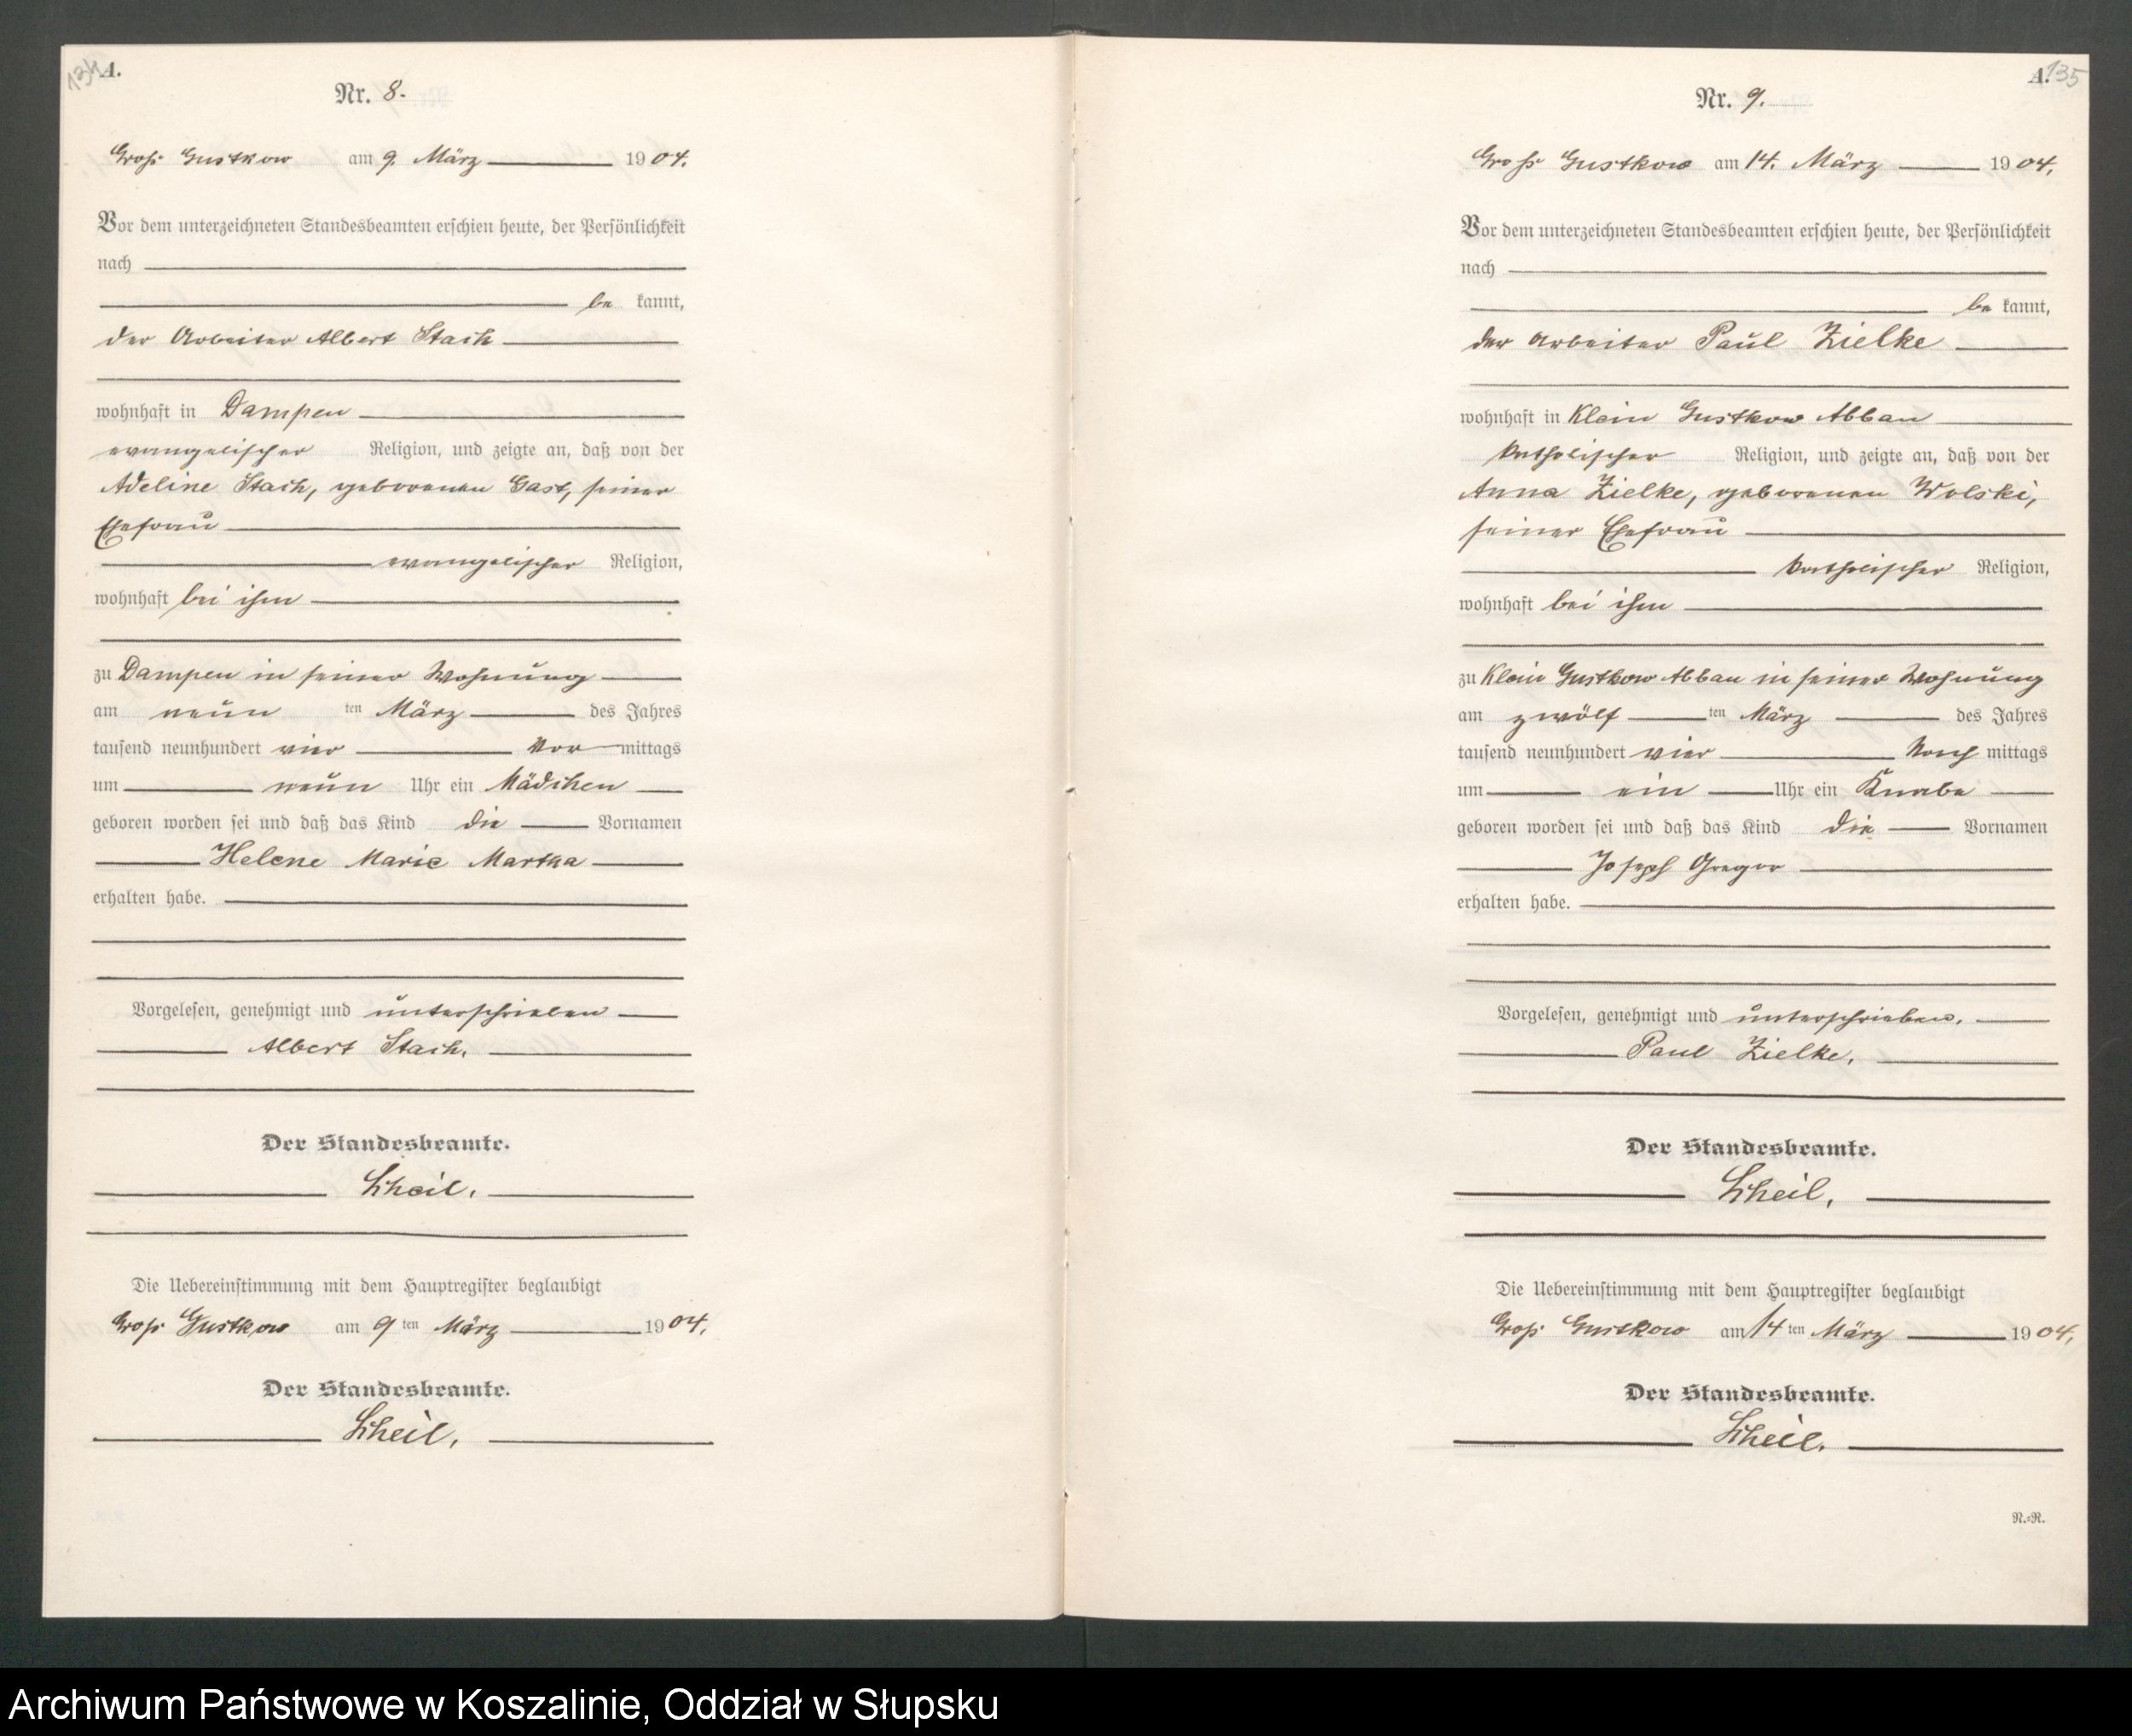 134
A.
Nr. 8.
Groß Gustkow am 9. März 1904.
Vor dem unterzeichneten Standesbeamten erschien heute, der Persönlichkeit
nach
be kannt,
der Arbeiter Albert Stach
wohnhaft in Dampen
evangelischer Religion, und zeigte an, daß von der
Adeline Stach, geborenen Gast, seiner
Ehefrau
evangelischer Religion,
wohnhaft bei ihm
zu Dampen in seiner Wohnung
am neun ten März des Jahres
tausend neunhundert vier Vor mittags
um neun Uhr ein Mädchen
geboren worden sei und daß das Kind die Vornamen
Helene Marie Martha
erhalten habe.
Vorgelesen, genehmigt und unterschrieben
Albert Stach.
Der Standesbeamte.
Scheil.
Die Uebereinstimmung mit dem Hauptregister beglaubigt
Groß Gustkow am 9 ten März 1904.
Der Standesbeamte.
Scheil.
A.
135
Nr. 9.
Groß Gustkow am 14. März 1904.
Vor dem unterzeichneten Standesbeamten erschien heute, der Persönlichkeit
nach
be kannt,
der Arbeiter Paul Zielke
wohnhaft in Klein Gustkow Abbau
katholischer Religion, und zeigte an, daß von der
Anna Zielke, geborenen Wolski,
seiner Ehefrau
katholischer Religion,
wohnhaft bei ihm
zu Klein Gustkow Abbau in seiner Wohnung
am zwölf ten März des Jahres
tausend neunhundert vier Nach mittags
um ein Uhr ein Knabe
geboren worden sei und daß das Kind die Vornamen
Joseph Gregor
erhalten habe.
Vorgelesen, genehmigt und unterschrieben.
Paul Zielke.
Der Standesbeamte.
Scheil.
Die Uebereinstimmung mit dem Hauptregister beglaubigt
Groß Gustkow am 14 ten März 1904.
Der Standesbeamte.
Scheil.
N.=R.
Archiwum Państwowe w Koszalinie, Oddział w Słupsku